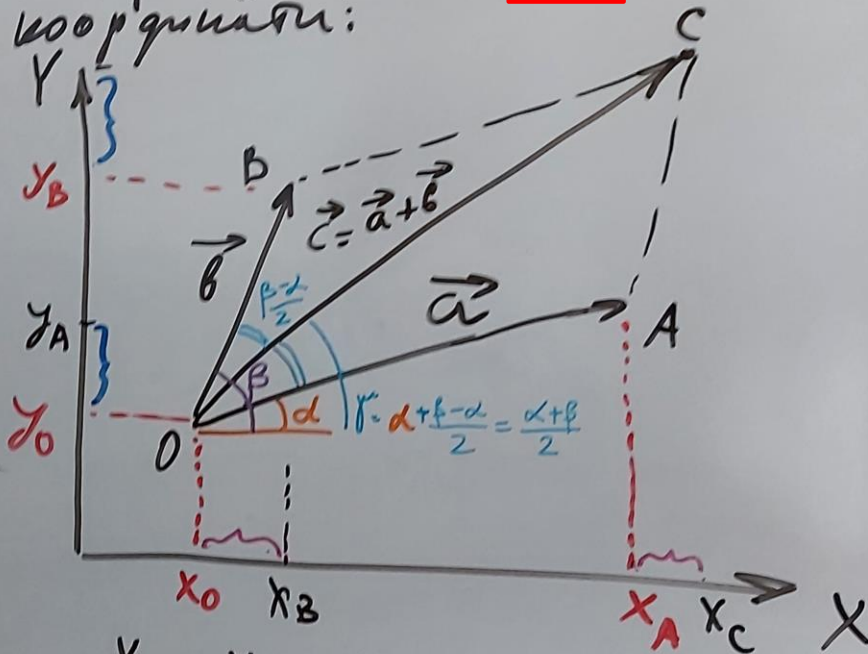 коор'динати:
C
Y
y_B
B
c⃗ = a⃗ + в⃗
в⃗
β-α/2
a⃗
y_A
A
β
α
γ = α + β-α/2 = α+β/2
y_0
O
x_0
x_B
x_A
x_C
X